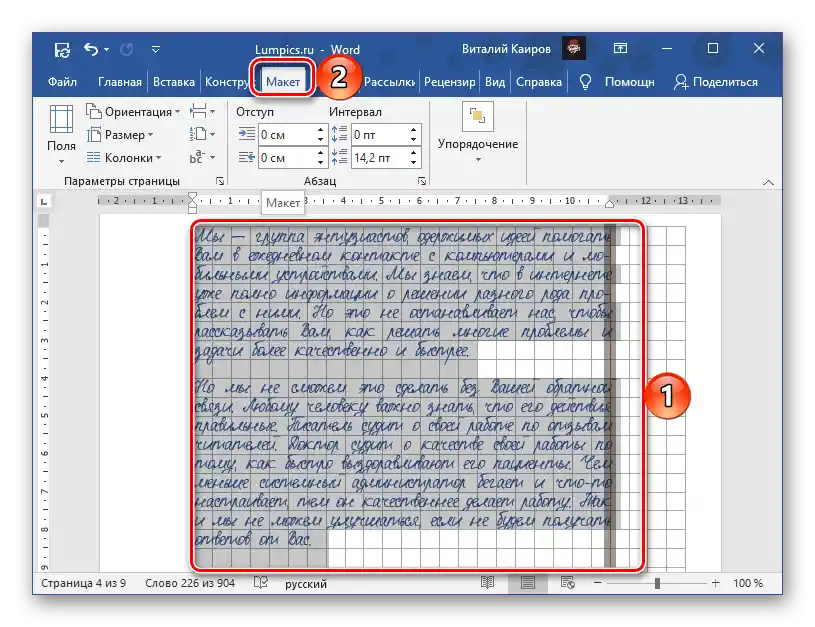 Lumpics.ru - Word
Виталий Каиров
Файл Главная Вставка Констру Макет Рассылки Рецензир Вид Справка Помощн Поделиться
2
Ориентация
Отступ Интервал
Поля
Размер
0 см 0 пт
Колонки
0 см 14,2 пт
Упорядочение
Параметры страницы Абзац
Макет
2 1 1 3 4 5 6 7 8 9 10 12 13
Мы — группа энтузиастов, одержимых идеей помогать
Вам в ежедневном контакте с компьютерами и мо-
бильными устройствами. Мы знаем, что в интернете
уже полно информации о решении разного рода про-
блем с ними. Но это не останавливает нас, чтобы
рассказывать Вам, как решать многие проблемы и
задачи более качественно и быстрее.
Но мы не сможем это сделать без Вашей обратной
связи. Любому человеку важно знать, что его действия
правильные. Писатель судит о своей работе по отзывам
читателей. Доктор судит о качестве своей работы по
тому, как быстро выздоравливают его пациенты. Чем
меньше системный администратор бегает и что-то
настраивает, тем он качественнее делает работу. Так
и мы не можем улучшаться, если не будем получать
ответов от Вас.
1
1 2 3 4 5 6 7 8 9
Страница 4 из 9 Слово 226 из 904 русский 100 %